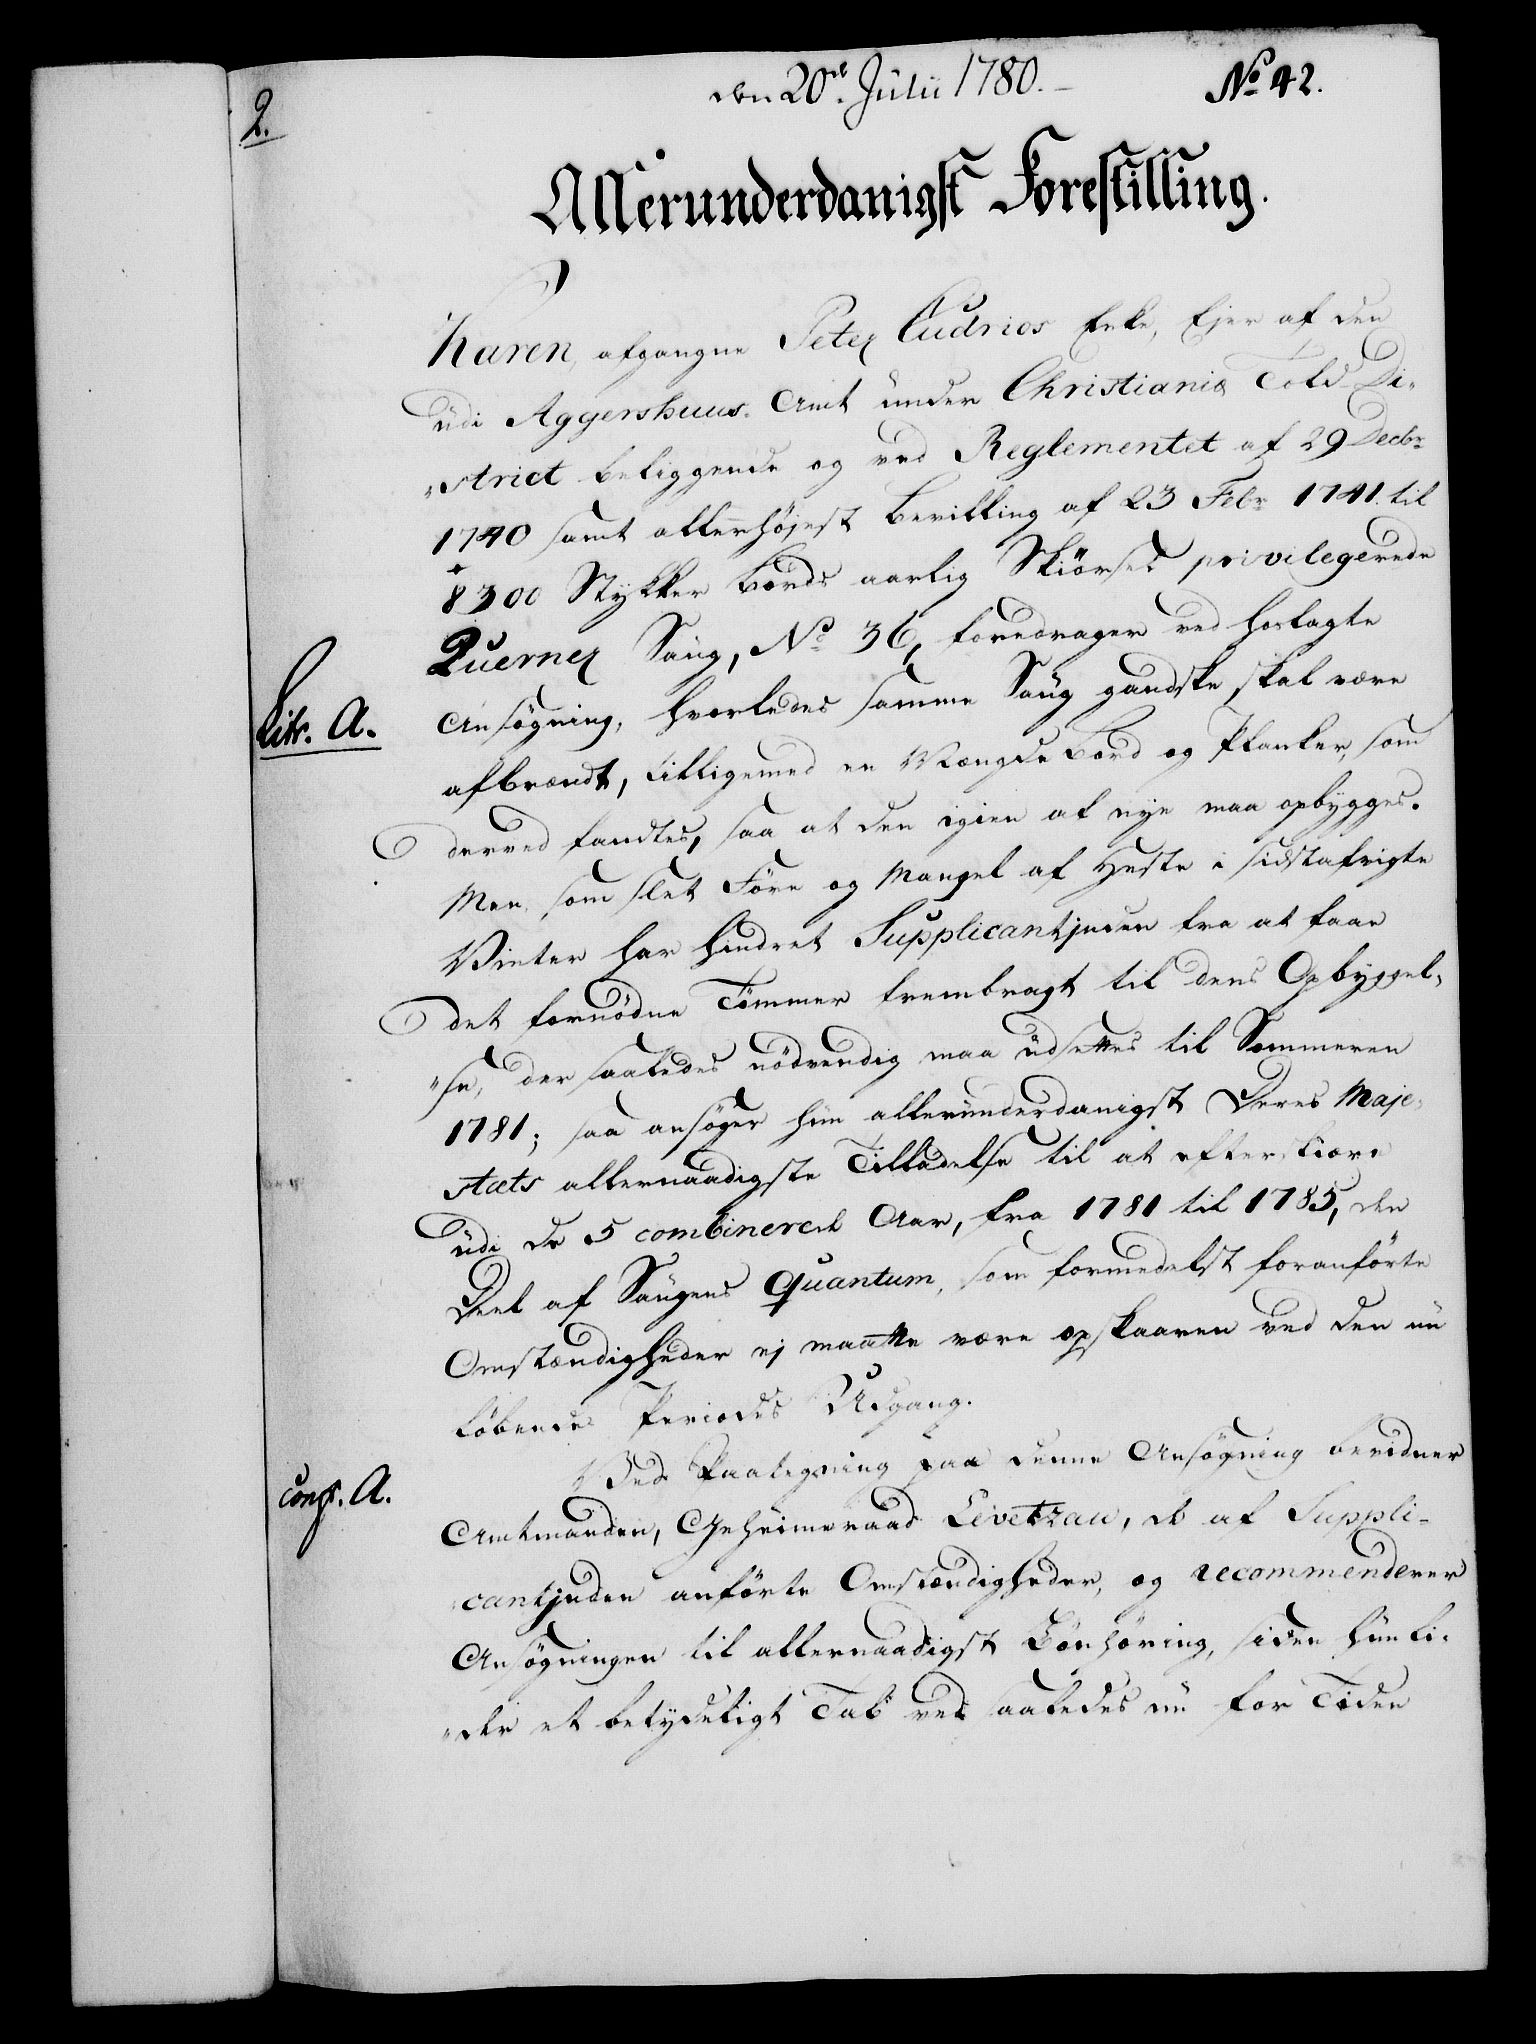 2.
den 20de Julii 1780. No 42.
Allerunderdanigst Forestilling.
Karen, afgangne Peter Cudrios Enke, Ejer af den
udi Aggershuus Amt under Christiania Told Di-
strict beliggende og ved Reglementet af 29 Decbr
1740 samt allerhøjest Bevilling af 23 Febr 1741 til
8300 Stykker Bords aarlig Skiørsel privilegerede
Querner Saug, No 36, foredrager ved hoslagte
Litr. A.
Ansøgning, hvorledes samme Saug gandske skal være
afbrændt, tilligemed en Mængde Bord og Planker, som
derved fandtes, saa at den igien af nye maa opbygges.
Men som slet Føre og Mangel af Heste i sidstafvigte
Vinter har hindret Supplicantjnden fra at faae
det fornødne Tømmer frembragt til dens Opbyggel-
se, der saaledes nødvendig maa udsættes til Sommeren
1781; saa ansøger hun allerunderdanigst Deres Maje-
stæts allernaadigste Tilladelse til at efterskiære
udi de 5 combinerede Aar, fra 1781 til 1785, den
Deel af Saugens Quantum, som formedelst foranførte
Omstændigheder ej maatte være opskaaren ved den nu
løbende Periodes Udgang.
Ved Paategning paa denne Ansøgning bevidner
conf. A.
Amtmanden, Geheimeraad Levetzau, de af Suppli-
cantjnden anførte Omstændigheder, og recommenderer
Ansøgningen til allernaadigst Bønhøring, siden hun li-
der et betydeligt Tab ved saaledes nu for Tiden